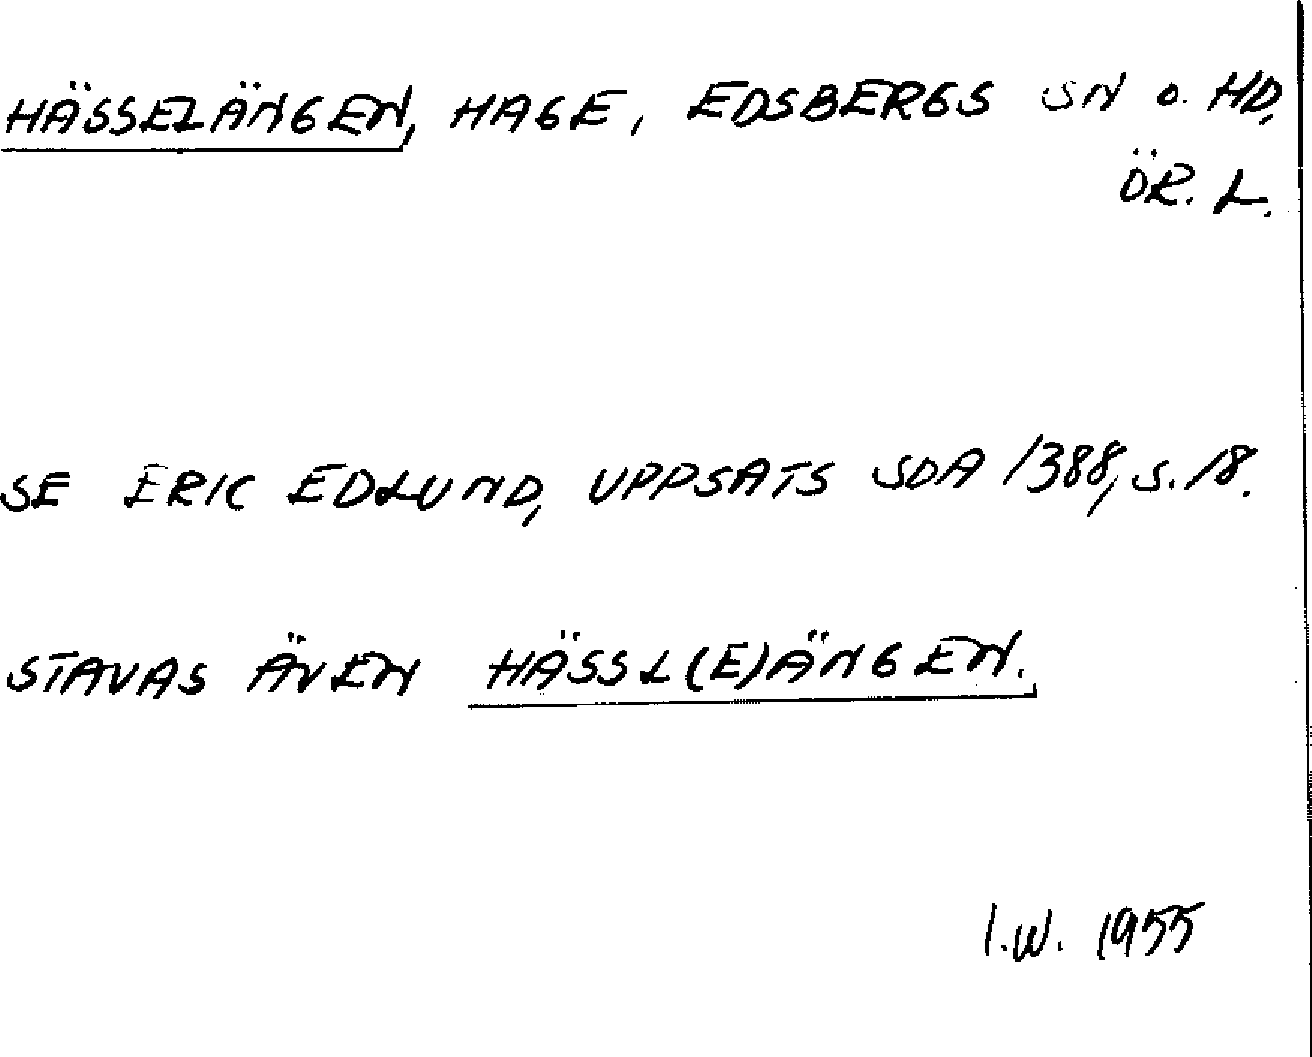 HÄSSELÄNGEN, HAGE, EDSBERGS SN O. HD,
ÖR. L.
SE ERIC EDLUND, UPPSATS SDA 1388, S. 18.
STAVAS ÄVEN HÄSSL(E)ÄNGEN.
I.W. 1955